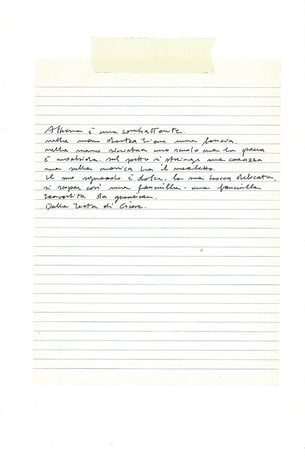 Athena è una combattente.
nella mano destra tiene una lancia.
nella mano sinistra uno scudo ma la
è morbida. sul petto si stringe una corazza
ma sulla manica ha il merletto.
il suo sguardo è dolce, la sua bocca delicata
si scopre così una fanciulla - una fanciulla
travestita da guerriera.
Dalla testa di Giove.